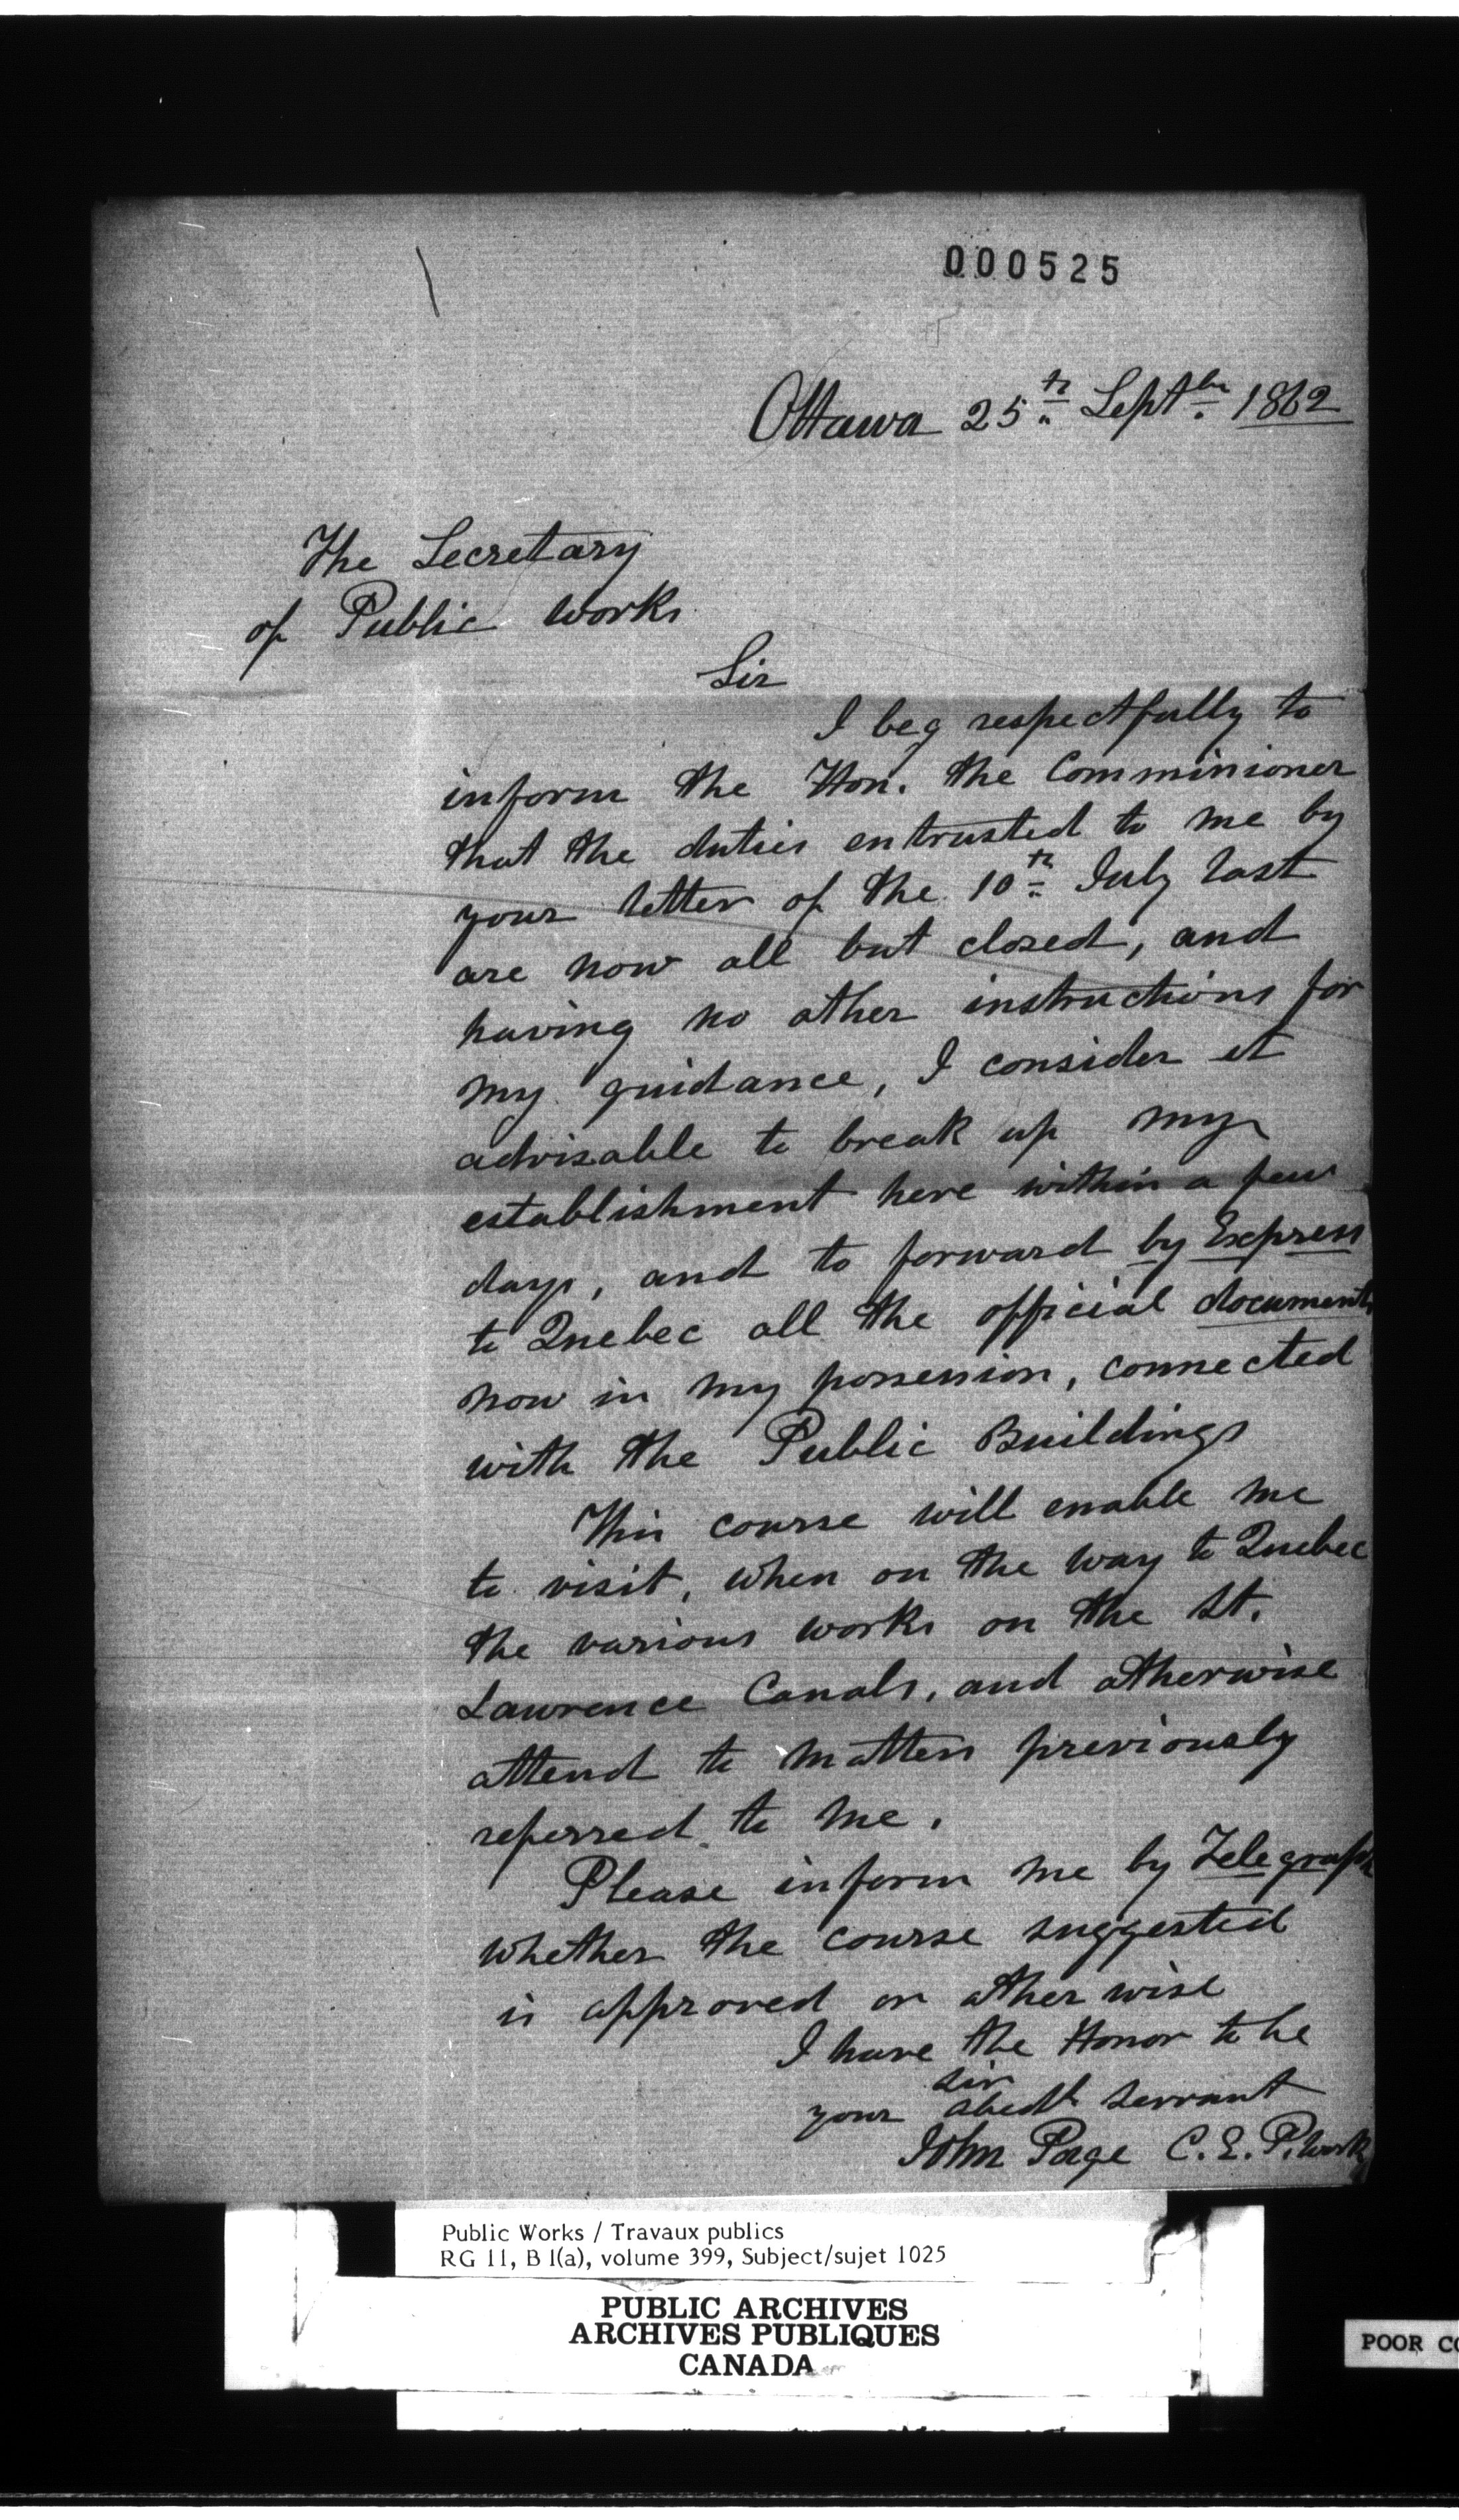 000525
Ottawa 25th Septbr 1862
The Secretary
of Public Works
Sir
I beg respectfully to
inform the Hon. the Commissioner
that the duties entrusted to me by
your letter of the 10th July last
are now all but closed, and
having no other instructions for
my guidance, I consider it
advisable to break up my
establishment here within a few
days, and to forward by Express
to Quebec all the official documents
now in my possession, connected
with the Public Buildings
This course will enable me
to visit, when on the way to Quebec
the various works on the St.
Lawrence Canals, and otherwise
attend to matters previously
referred to me.
Please inform me by Telegraph
whether the course suggested
is approved or other wise
I have the Honor to be
Sir
your obedt servant
John Page C. E. P. Works
Public Works / Travaux publics
RG 11, B 1(a), volume 399, Subject/sujet 1025
PUBLIC ARCHIVES
ARCHIVES PUBLIQUES
CANADA
POOR